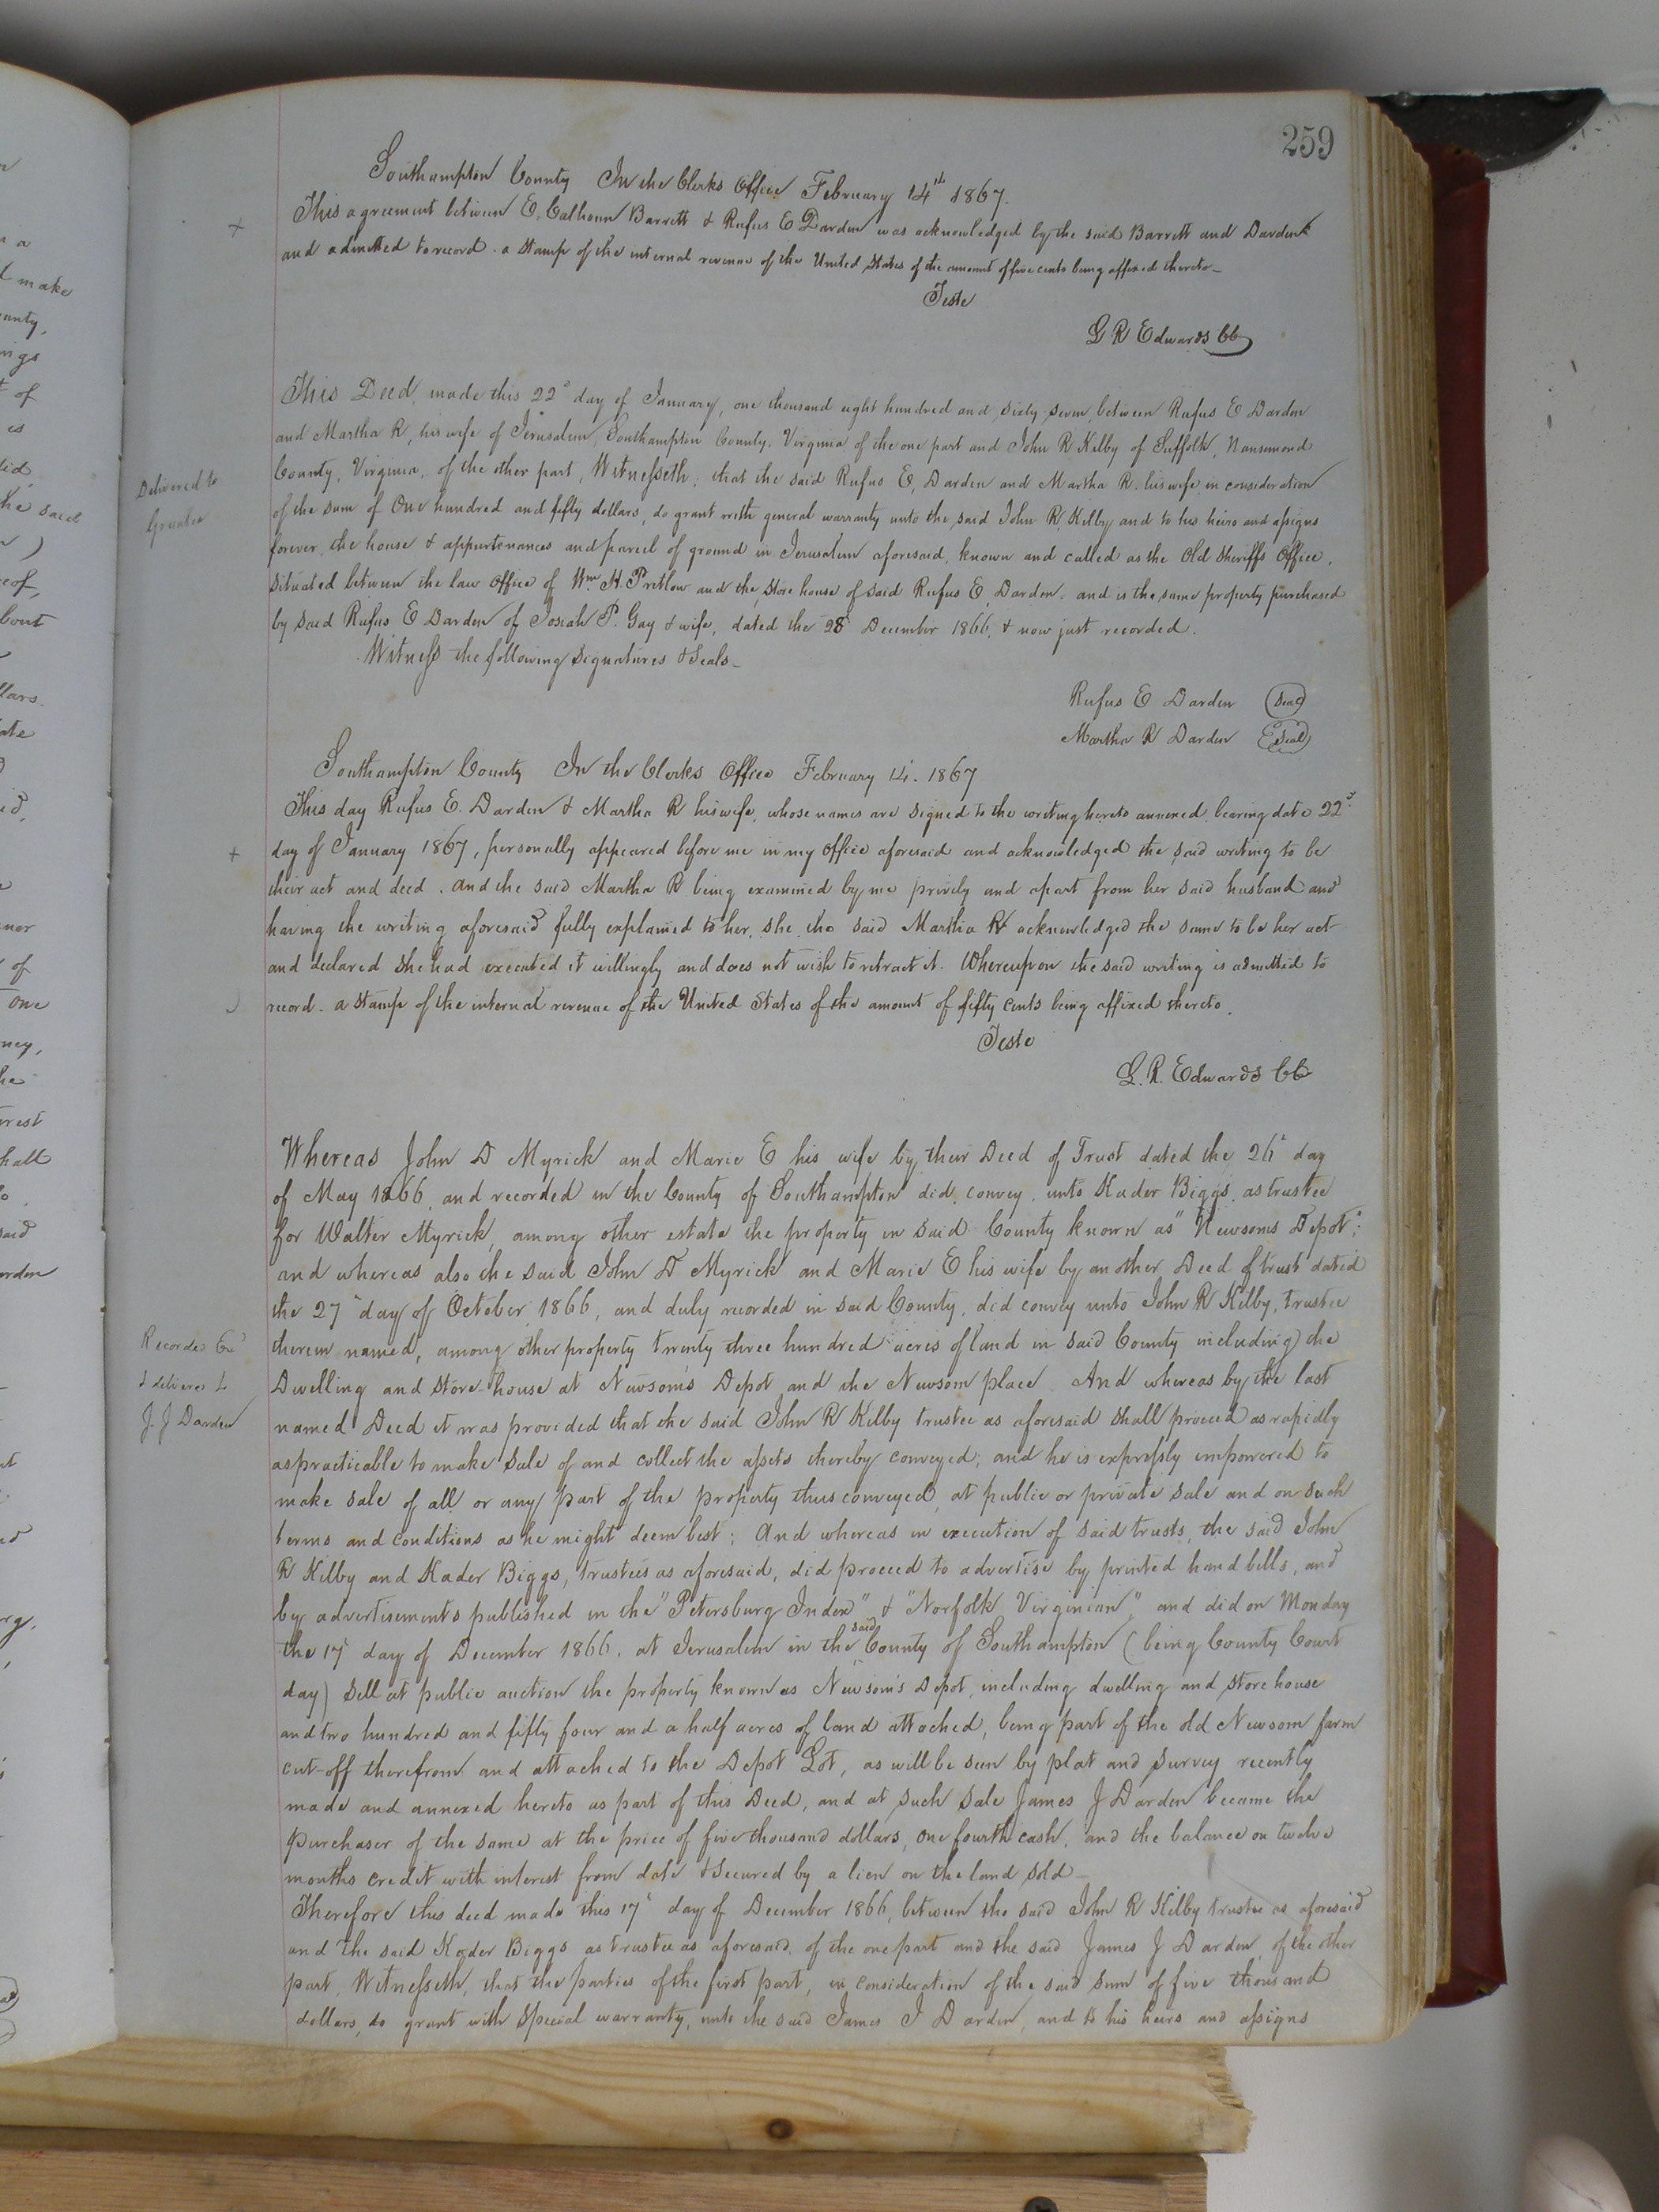 259
Southampton County In the Clerks Office February 14th 1867.
This agreement between E. Calhoun Barrett & Rufus E Darden was acknowledged by the said Barrett and Darden
and admitted to record. a stamp of the internal revenue of the United States of the amount of five cents being affixed thereto
Teste
G R Edwards CC
This Deed, made this 22d day of January, one thousand eight hundred and sixty seven, between Rufus E Darden
and Martha R, his wife of Jerusalem, Southampton County, Virginia of the one part and John R Kilby of Suffolk, Nansemond
County, Virginia, of the other part, Witnesseth; that the said Rufus E, Darden and Martha R. his wife in consideration
Delivered to
Grantee
of the sum of One hundred and fifty dollars, do grant with general warranty unto the said John R, Kilby and to his heirs and assigns
forever, the house & appurtenances and parcel of ground in Jerusalem aforesaid, known and called as the Old Sheriffs Office,
situated between the law office of Wm H Pretlow and the store house of said Rufus E, Darden, and is the same property purchased
by said Rufus E Darden of Josiah P. Gay & wife, dated the 28 December 1866, & now just recorded.
Witness the following signatures & Seals
Rufus E Darden (Seal)
Martha R Darden (Seal)
Southampton County In the Clerks Office February 14. 1867
This day Rufus E. Darden & Martha R his wife, whose names are signed to the writing hereto annexed bearing date 22d
day of January 1867, personally appeared before me in my office aforesaid and acknowledged the said writing to be
their act and deed. and the said Martha R being examined by me privily and apart from her said husband and
having the writing aforesaid fully explained to her, she the said Martha R acknowledged the same to be her act
and declared she had executed it willingly and does not wish to retract it. Whereupon the said writing is admitted to
record. a stamp of the internal revenue of the United States of the amount of fifty cents being affixed thereto.
Teste
G. R. Edwards CC
Whereas John D Myrick and Marie E his wife by their Deed of Trust dated the 26 day
of May 1866, and recorded in the County of Southampton did, convey, unto Kader Biggs, as trustee
for Walter Myrick, among other estate the property in said County known as "Newsoms Depot";
and whereas also the said John D Myrick and Marie E his wife by another Deed of trust dated
the 27 day of October 1866, and duly recorded in said County, did convey unto John R Kilby, trustee
Recorded
& delivered to
J. J Darden
therein named, among other property twenty three hundred acres of land in said County including the
Dwelling and store-house at Newsom's Depot and the Newsom place And whereas by the last
named Deed it was provided that the said John R Kilby trustee as aforesaid shall proceed as rapidly
as practicable to make sale of and collect the assets thereby conveyed; and he is expressly empowered to
make sale of all or any part of the property thus conveyed, at public or private sale and on such
terms and conditions as he might deem best; And whereas in execution of said trusts, the said John
R Kilby and Kader Biggs, trustees as aforesaid, did proceed to advertise by printed hand bills, and
by advertisements published in the "Petersburg Index" & "Norfolk Virginian", and did on Monday
the 17 day of December 1866. at Jerusalem in the said County of Southampton (being County Court
day) Sell at public auction the property known as Newsom's Depot, including dwelling and storehouse
and two hundred and fifty four and a half acres of land attached, being part of the old Newsom farm
cut-off therefrom and attached to the Depot Lot, as will be seen by plat and survey recently
made and annexed hereto as part of this Deed, and at such sale James J Darden became the
purchaser of the same at the price of five thousand dollars, one fourth cash, and the balance on twelve
months credit with interest from date & secured by a lien on the land sold
Therefore this deed made this 17 day of December 1866, between the said John R Kilby trustee as aforesaid
and the said Kader Biggs as trustee as aforesaid, of the one part and the said James J Darden of the other
part, Witnesseth, that the parties of the first part, in consideration of the said sum of five thousand
dollars, do grant with special warranty, unto the said James J Darden, and to his heirs and assigns